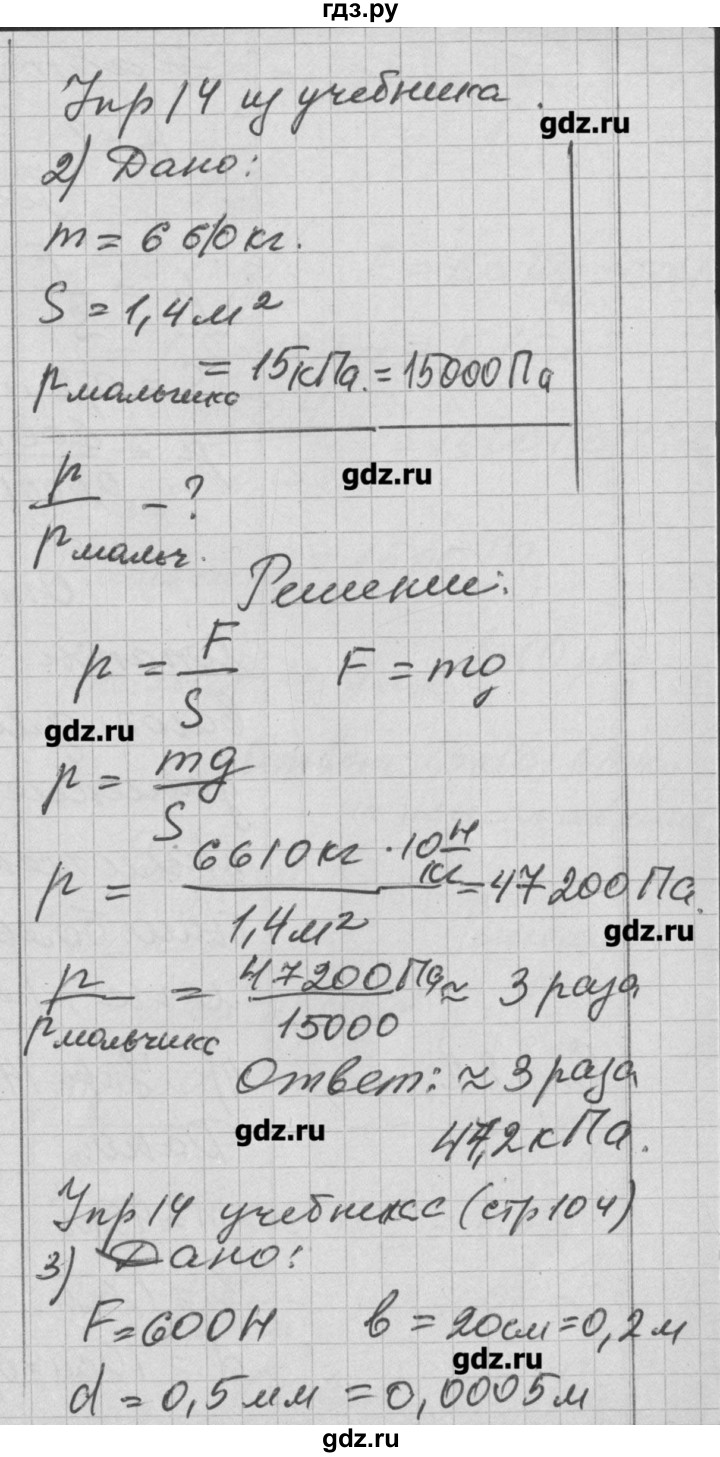 гдз.ру
Упр 14 из учебника.
gdz.ru
2) Дано:
m = 6610 кг.
S = 1,4 м²
p мальчика = 15 кПа. = 15000 Па
gdz.ru
p / p мальч. - ?
Решение:
p = F/S   F = mg
gdz.ru
p = mg/S
p = 6610 кг · 10 Н/кг / 1,4 м² = 47200 Па.
gdz.ru
p / p мальчика = 47200 Па / 15000 ≈ 3 раза
Ответ: ≈ 3 раза
gdz.ru
47,2 кПа.
Упр 14 учебника (стр 104)
3) Дано:
F = 600 Н   в = 20 см = 0,2 м
gdz.ru
d = 0,5 мм = 0,0005 м
gdz.ru